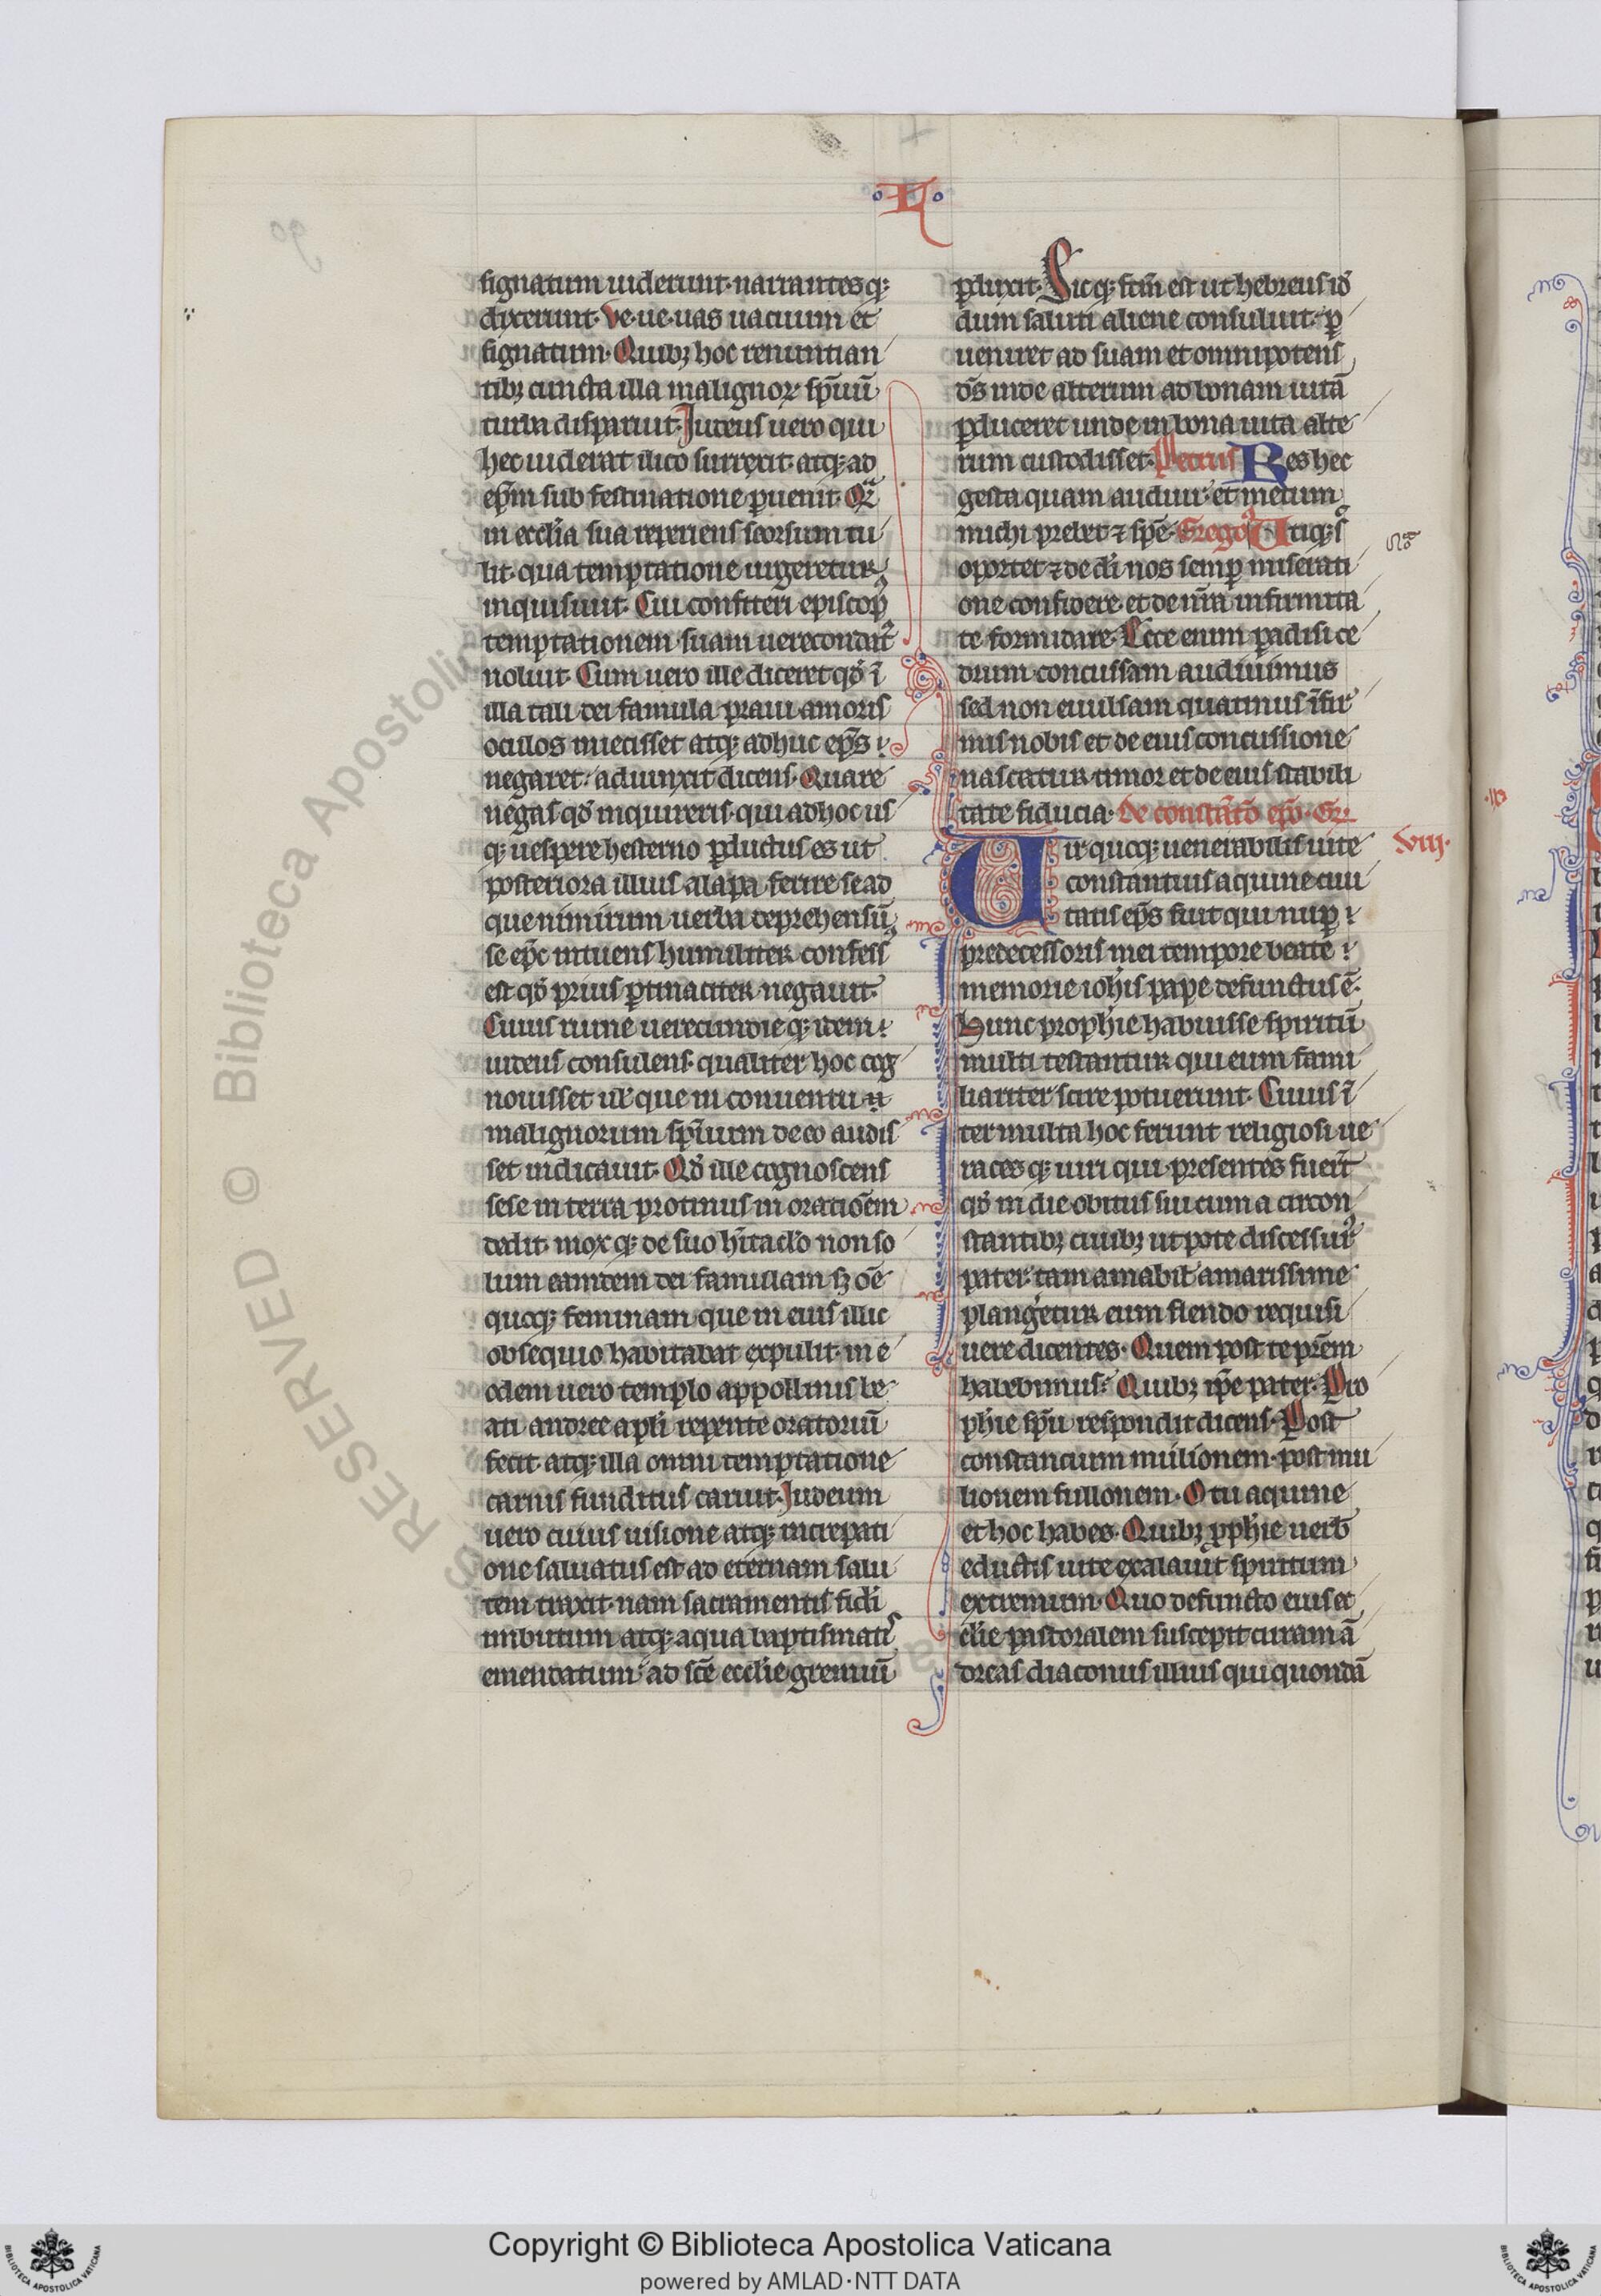 L
signatum uiderunt. narrantesq;
dixerunt. Ve. ue. uas uacuum et
signatum. Quibꝫ hoc renuntian
tibꝫ cuncta illa malignoꝝ sp̄uū
turba disparuit. Iudeus uero qui
hec uiderat ilico surrexit. atq; ad
ep̄m sub festinatione ꝑuenit. Qͣꝫ
in ecclīa sua reperiens seorsum tu
lit. qua temptatione urgeretur
inquisiuit. Cui confiteri episcopꝰ
temptationem suam uerecondatꝰ
noluit. Cum uero ille diceret qđ ī
illa tali dei famula praui amoris
oculos iniecisset atq; adhuc ep̄s
negaret. adiunxit dicens. Quare
negas qđ inquireris. qui ad hoc us
q; uespere hesterno ꝑductus es ut
posteriora illius alapa ferire se ad
que nimirum uerba deprehensū
se ep̄c intuens humiliter confessꝰ
est qđ prius ꝑtinaciter negauit.
Cuius ruine uerecundieq; idem
iudeus consulens. qualiter hoc cog
nouisset uł que in conuentu
malignorum sp̄uum de eo audis
set indicauit. Qđ ille cognoscens
sese in terra protinus in oratiōem
dedit. moxq; de suo hītacło non so
lum eamdem dei famulam sꝫ om̄ē
quoq; feminam que in eius illic
obsequio habitabat expulit. in e
odem uero templo appollinis be
ati andree apłi repente oratoriū
fecit. atq; illa omni temptatione
carnis funditus caruit. Iudeum
uero cuius uisione atq; increpati
one saluatus est ad eternam salu
tem traxit. nam sacramentis fidei
imbutum atq; aqua baptismatis
emendatum. ad scē ecclīe gremiū
ꝑduxit. Sicq; fcm̄ est ut hebreus iđ
dum saluti aliene consuluit. ꝑ
ueniret ad suam et omnipotens
dꝰs inde alterum ad bonam uitā
ꝑduceret unde in bona uita alte
rum custodisset. Petrus Res hec
gesta quam audiui. et metum
michi prebet ⁊ spē. Gregoꝰ Utiq; sͦ
oportet ⁊ de dī nos semꝑ miserati
one confidere. et de nrā infirmita
te formidare. Ecce enim ꝑadisi ce
drum concussam audiuimus
sed non euulsam quatinus īfir
mis nobis et de eius concussione
nascatur timor et de eius stabili
tate fiducia. De constātio ep̄o. Gr.
Uir quoq; uenerabilis uite
viij.
constantius aquine ciui
tatis ep̄s fuit qui nuꝑ
predecessoris mei tempore beate
memorie ioh̄is pape defunctus ē.
Hunc proph̄ie habuisse spiritū
multi testantur qui eum fami
liariter scire potuerunt. Cuius ī
ter multa hoc ferunt religiosi ue
racesq; uiri qui presentes fuerūt
qđ in die obitus sui cum a circon
stantibꝫ ciuibꝫ utpote discessurꝰ
pater tam amabil' amarissime
plangeretur eum flendo requisi
uere dicentes. Quem post te pr̄em
habebimus. Quibꝫ ip̄e pater. Pro
ph̄ie sp̄u respondit dicens. Post
constancium mulionem. post mu
lionem fullonem. O tu aquine
et hoc habes. Quibꝫ ꝓph̄ie uerb'
eductis uite exalauit spiritum
extremum. Quo defuncto eius ec
clīe pastoralem suscepit curam ā
dreas diaconus illius qui quondā
Copyright © Biblioteca Apostolica Vaticana
powered by AMLAD·NTT DATA